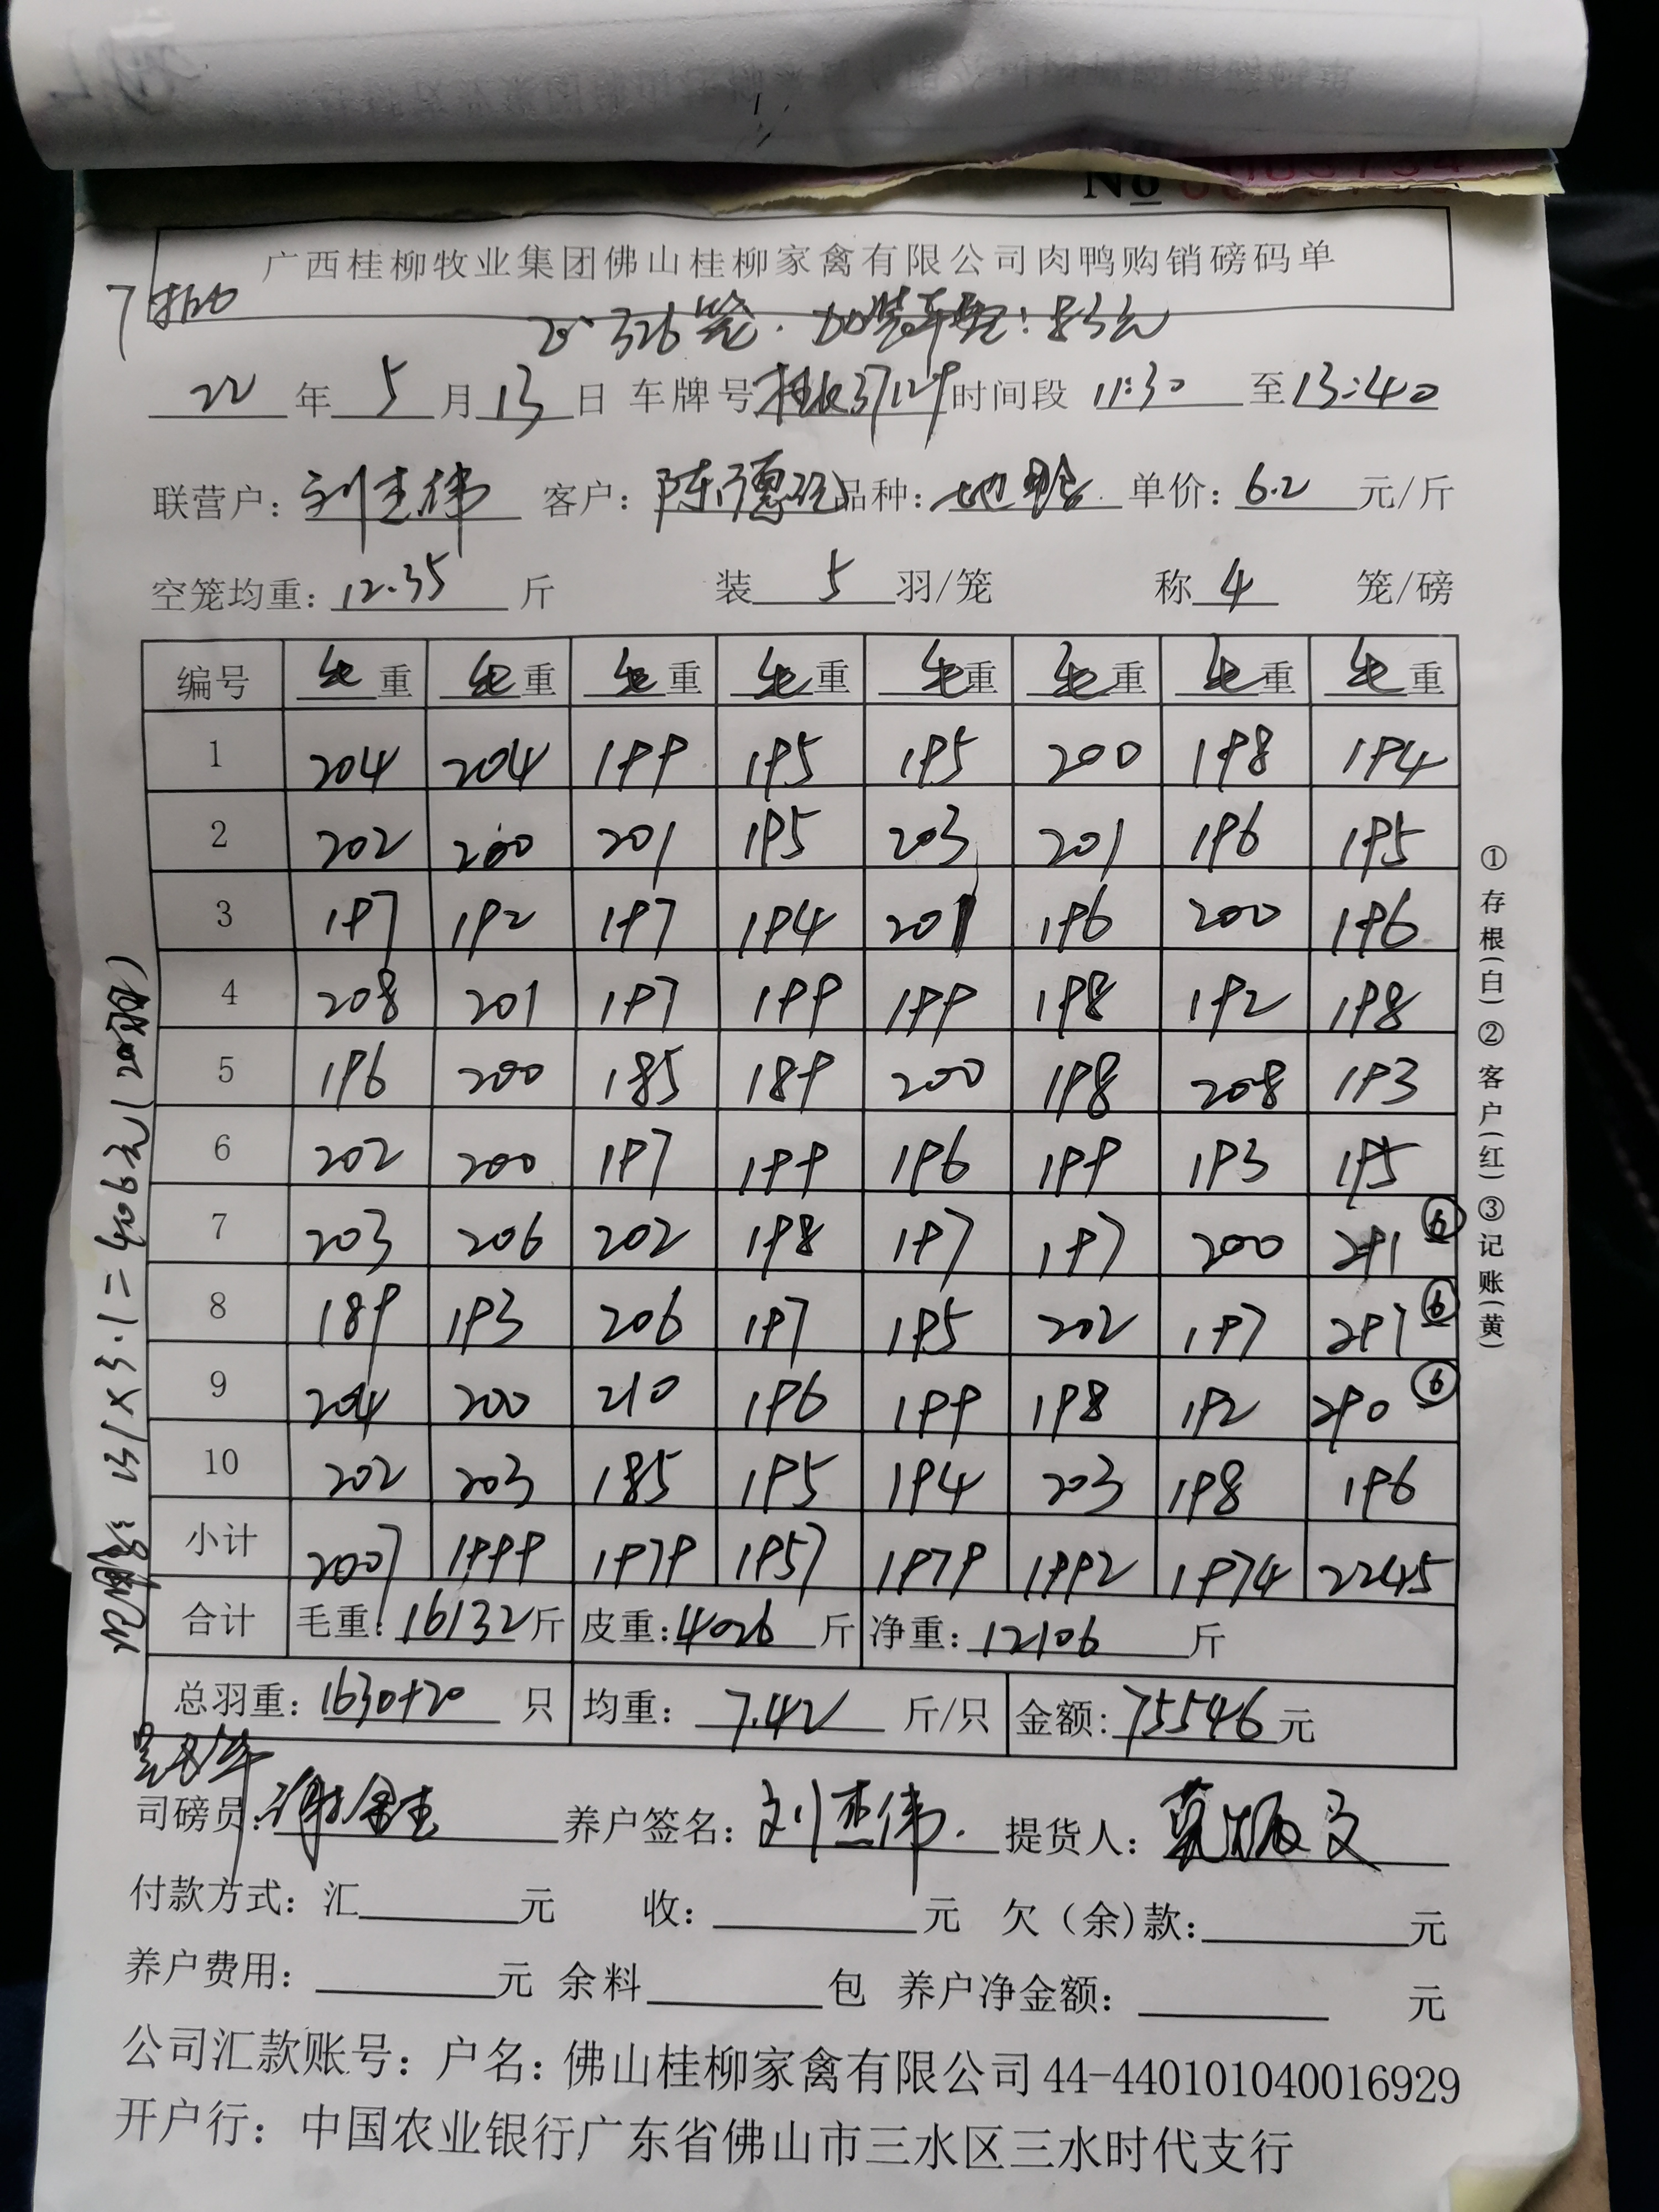 No
广西桂柳牧业集团佛山桂柳家禽有限公司肉鸭购销磅码单
326笼.加装车费:
22年5月13日 车牌号 时间段 11:30 至 13:40
联营户: 刘杰伟 客户: 陈德 品种: 单价: 6.2 元/斤
空笼均重: 12.35 斤 装 5 羽/笼 称 4 笼/磅
编号 毛重 毛重 毛重 毛重 毛重 毛重 毛重 毛重
1 204 204 199 195 195 200 198 194
2 202 200 201 195 203 201 196 195
3 197 192 197 194 201 196 200 196
4 208 201 197 199 199 198 192 198
5 196 200 185 189 200 198 208 193
6 202 200 197 199 196 199 193 195
7 203 206 202 198 197 197 200 291 ⑥
8 189 193 206 197 195 202 197 297 ⑥
9 204 200 210 196 199 198 192 290 ⑥
10 202 203 185 195 194 203 198 196
小计 2007 1999 1979 1957 1979 1992 1974 2245
合计 毛重: 16132 斤 皮重: 4026 斤 净重: 12106 斤
总羽重: 1630+20 只 均重: 7.42 斤/只 金额: 75546 元
司磅员: 养户签名: 刘杰伟. 提货人: 莫振文
付款方式: 汇 元 收: 元 欠(余)款: 元
养户费用: 元 余料 包 养户净金额: 元
公司汇款账号: 户名: 佛山桂柳家禽有限公司 44-440101040016929
开户行: 中国农业银行广东省佛山市三水区三水时代支行
①存根(白)②客户(红)③记账(黄)
×3.1=406元